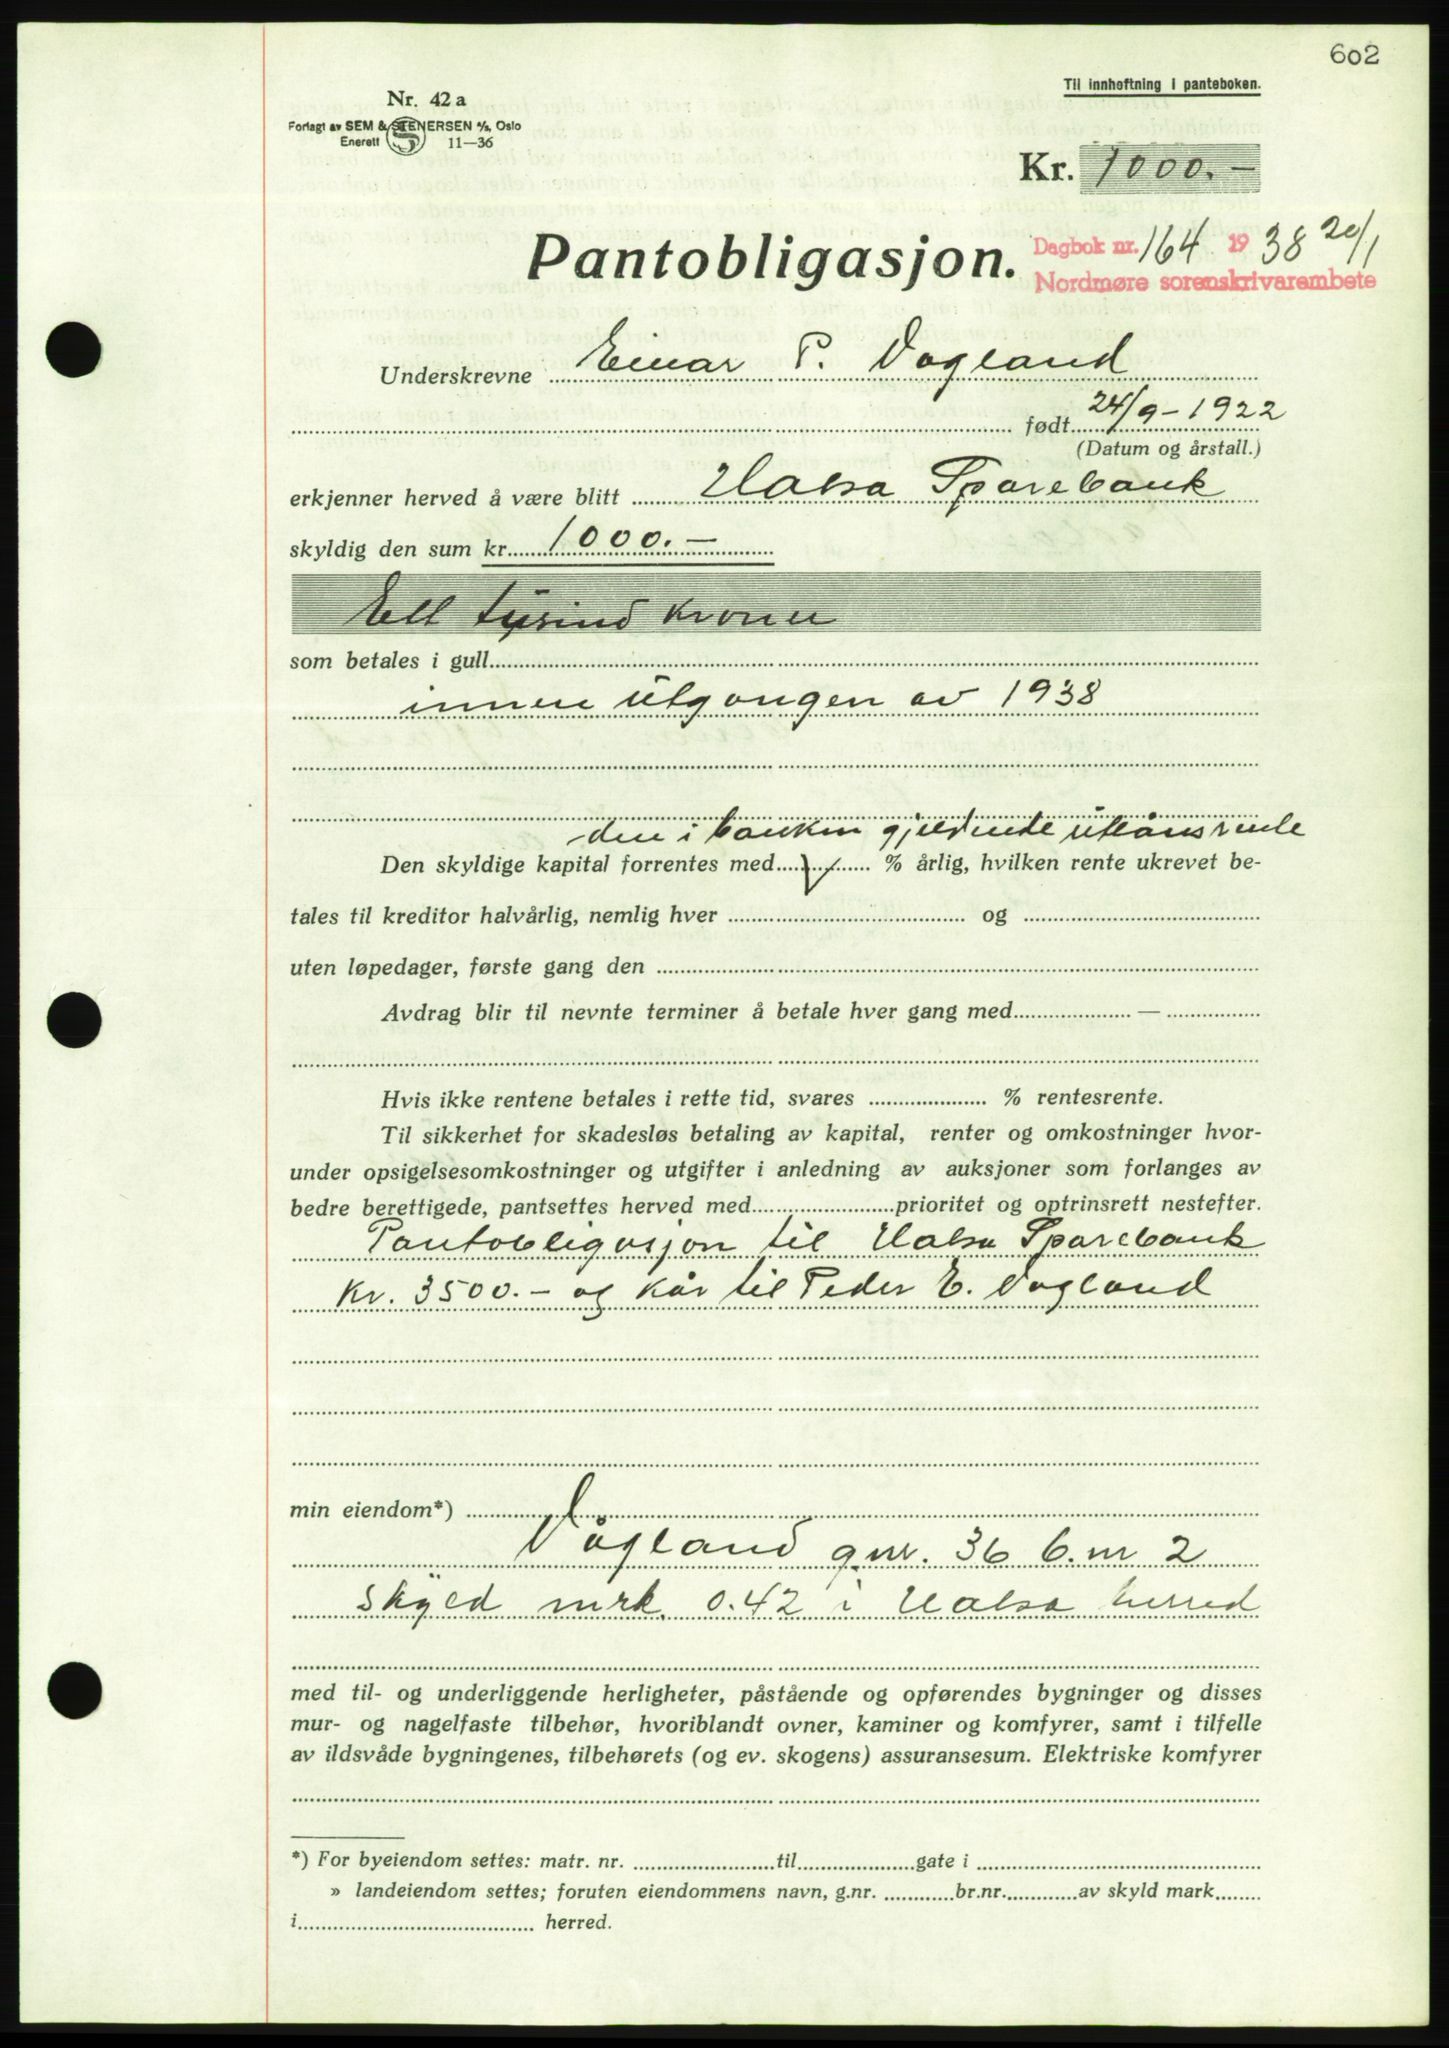 602
Til innheftning i panteboken.
Nr. 42 a
Forlagt av SEM & STENERSEN A/S, Oslo
Enerett 11-36
Kr. 1000.-
Pantobligasjon.
Dagbok nr. 164 1938 20/1
Nordmøre sorenskrivarembete
Underskrevne Einar P. Vagland
født 24/9-1922
(Datum og årstall.)
erkjenner herved å være blitt Halsa Sparebank
skyldig den sum kr. 1000.-
Ett tusind kroner
som betales i gull
innen utgangen av 1938
den i banken gjeldende utlånsrente
Den skyldige kapital forrentes med % årlig, hvilken rente ukrevet be-
tales til kreditor halvårlig, nemlig hver og
uten løpedager, første gang den
Avdrag blir til nevnte terminer å betale hver gang med —
Hvis ikke rentene betales i rette tid, svares % rentesrente.
Til sikkerhet for skadesløs betaling av kapital, renter og omkostninger hvor-
under opsigelsesomkostninger og utgifter i anledning av auksjoner som forlanges av
bedre berettigede, pantsettes herved med prioritet og optrinsrett nestefter.
Pantobligasjon til Halsa Sparebank
kr. 3500.- og kår til Peder E. Vagland
min eiendom*)
Vågland g.nr. 36 b.nr 2
skyld mrk. 0.42 i Halsa herred
med til- og underliggende herligheter, påstående og opførendes bygninger og disses
mur- og nagelfaste tilbehør, hvoriblandt ovner, kaminer og komfyrer, samt i tilfelle
av ildsvåde bygningenes, tilbehørets (og ev. skogens) assuransesum. Elektriske komfyrer
*) For byeiendom settes: matr. nr. til gate i
» landeiendom settes; foruten eiendommens navn, g.nr. br.nr. av skyld mark
i herred.